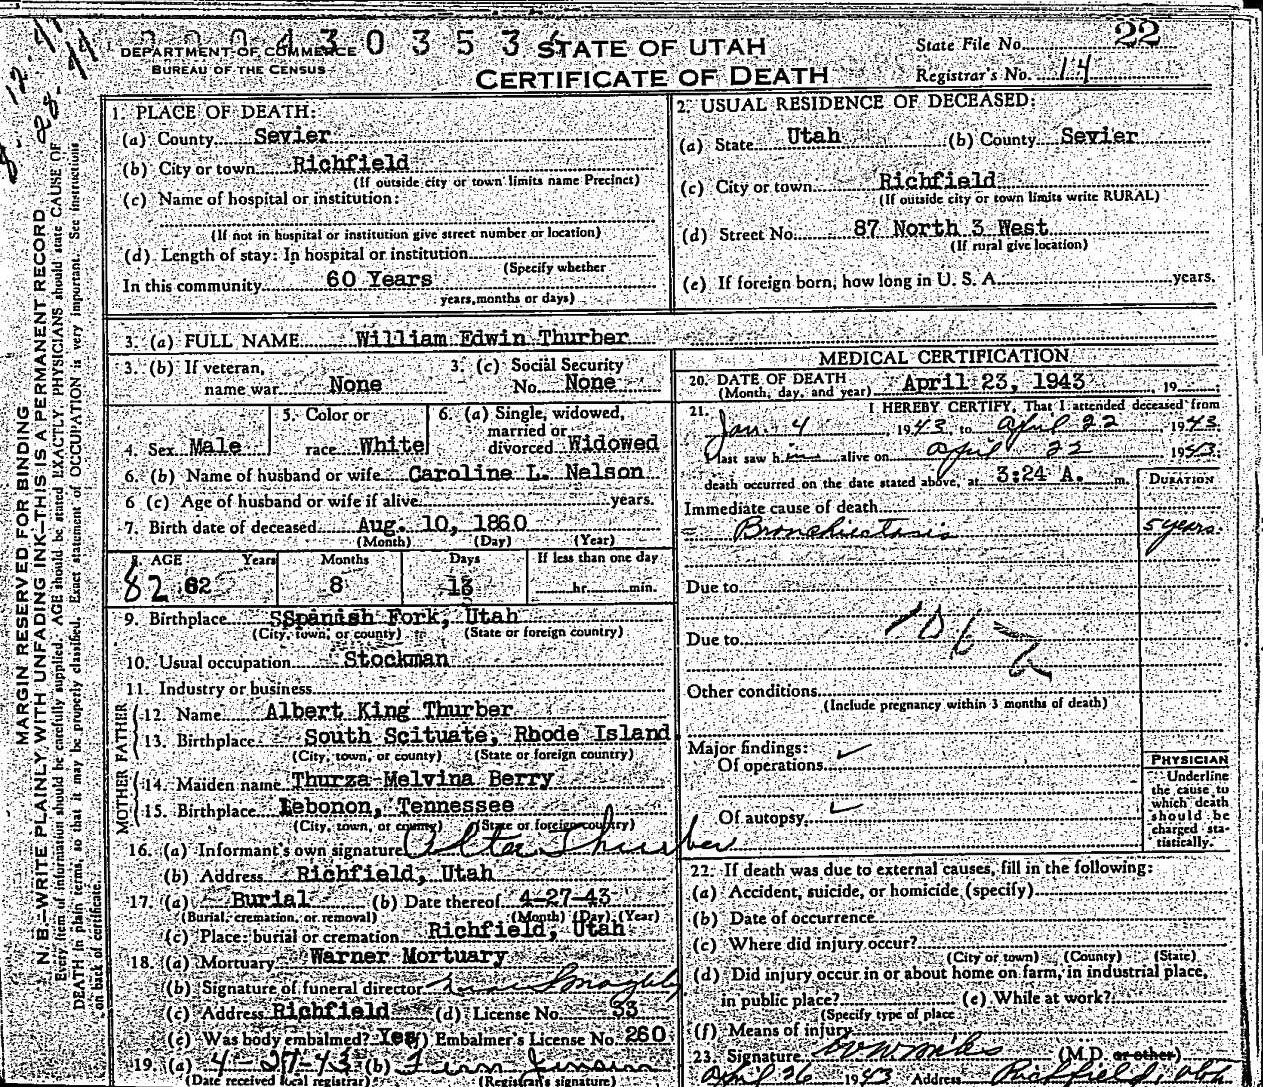 DEPARTMENT OF COMMERCE
BUREAU OF THE CENSUS
STATE OF UTAH
CERTIFICATE OF DEATH
State File No. 22
Registrar's No. 14
MARGIN RESERVED FOR BINDING
N. B.—WRITE PLAINLY, WITH UNFADING INK—THIS IS A PERMANENT RECORD
Every item of information should be carefully supplied. AGE should be stated EXACTLY. PHYSICIANS should state CAUSE OF
DEATH in plain terms, so that it may be properly classified. Exact statement of OCCUPATION is very important. See instructions
on back of certificate.
1. PLACE OF DEATH:
(a) County Sevier
(b) City or town Richfield
(If outside city or town limits name Precinct)
(c) Name of hospital or institution:
(If not in hospital or institution give street number or location)
(d) Length of stay: In hospital or institution
(Specify whether
In this community 60 Years
years, months or days)
2. USUAL RESIDENCE OF DECEASED:
(a) State Utah (b) County Sevier
(c) City or town Richfield
(If outside city or town limits write RURAL)
(d) Street No. 87 North 3 West
(If rural give location)
(e) If foreign born, how long in U. S. A. years.
3. (a) FULL NAME William Edwin Thurber
3. (b) If veteran, 3. (c) Social Security
name war None No. None
4. Sex Male
5. Color or
race White
6. (a) Single, widowed,
married or
divorced Widowed
6. (b) Name of husband or wife Caroline L. Nelson
6 (c) Age of husband or wife if alive years.
7. Birth date of deceased Aug. 10, 1860
(Month) (Day) (Year)
8. AGE Years Months Days If less than one day
82 82 8 13 hr. min.
9. Birthplace Spanish Fork, Utah
(City, town, or county) (State or foreign country)
10. Usual occupation Stockman
11. Industry or business
FATHER
12. Name Albert King Thurber
13. Birthplace South Scituate, Rhode Island
(City, town, or county) (State or foreign country)
MOTHER
14. Maiden name Thurza Melvina Berry
15. Birthplace Lebonon, Tennessee
(City, town, or county) (State or foreign country)
16. (a) Informant's own signature Thurber
(b) Address Richfield, Utah
17. (a) Burial (b) Date thereof 4-27-43
(Burial, cremation, or removal) (Month) (Day) (Year)
(c) Place: burial or cremation Richfield, Utah
18. (a) Mortuary Warner Mortuary
(b) Signature of funeral director
(c) Address Richfield (d) License No. 33
(e) Was body embalmed? Yes (f) Embalmer's License No. 260
19. (a) 4-27-43 (b) Jensen
(Date received local registrar) (Registrar's signature)
MEDICAL CERTIFICATION
20. DATE OF DEATH April 23, 1943, 19
(Month, day, and year)
21. I HEREBY CERTIFY, That I attended deceased from
Jan. 4, 1943 to April 22, 1943
I last saw him alive on April 22 1943;
death occurred on the date stated above, at 3:24 A. m.
DURATION
Immediate cause of death
Bronchiectasis 5 years.
Due to
Due to
Other conditions
(Include pregnancy within 3 months of death)
Major findings:
Of operations
Of autopsy
PHYSICIAN
Underline
the cause to
which death
should be
charged sta-
tistically.
22. If death was due to external causes, fill in the following:
(a) Accident, suicide, or homicide (specify)
(b) Date of occurrence
(c) Where did injury occur?
(City or town) (County) (State)
(d) Did injury occur in or about home on farm, in industrial place,
in public place? (e) While at work?
(Specify type of place
(f) Means of injury
23. Signature (M.D. or other)
April 26 1943 Address Richfield, Utah